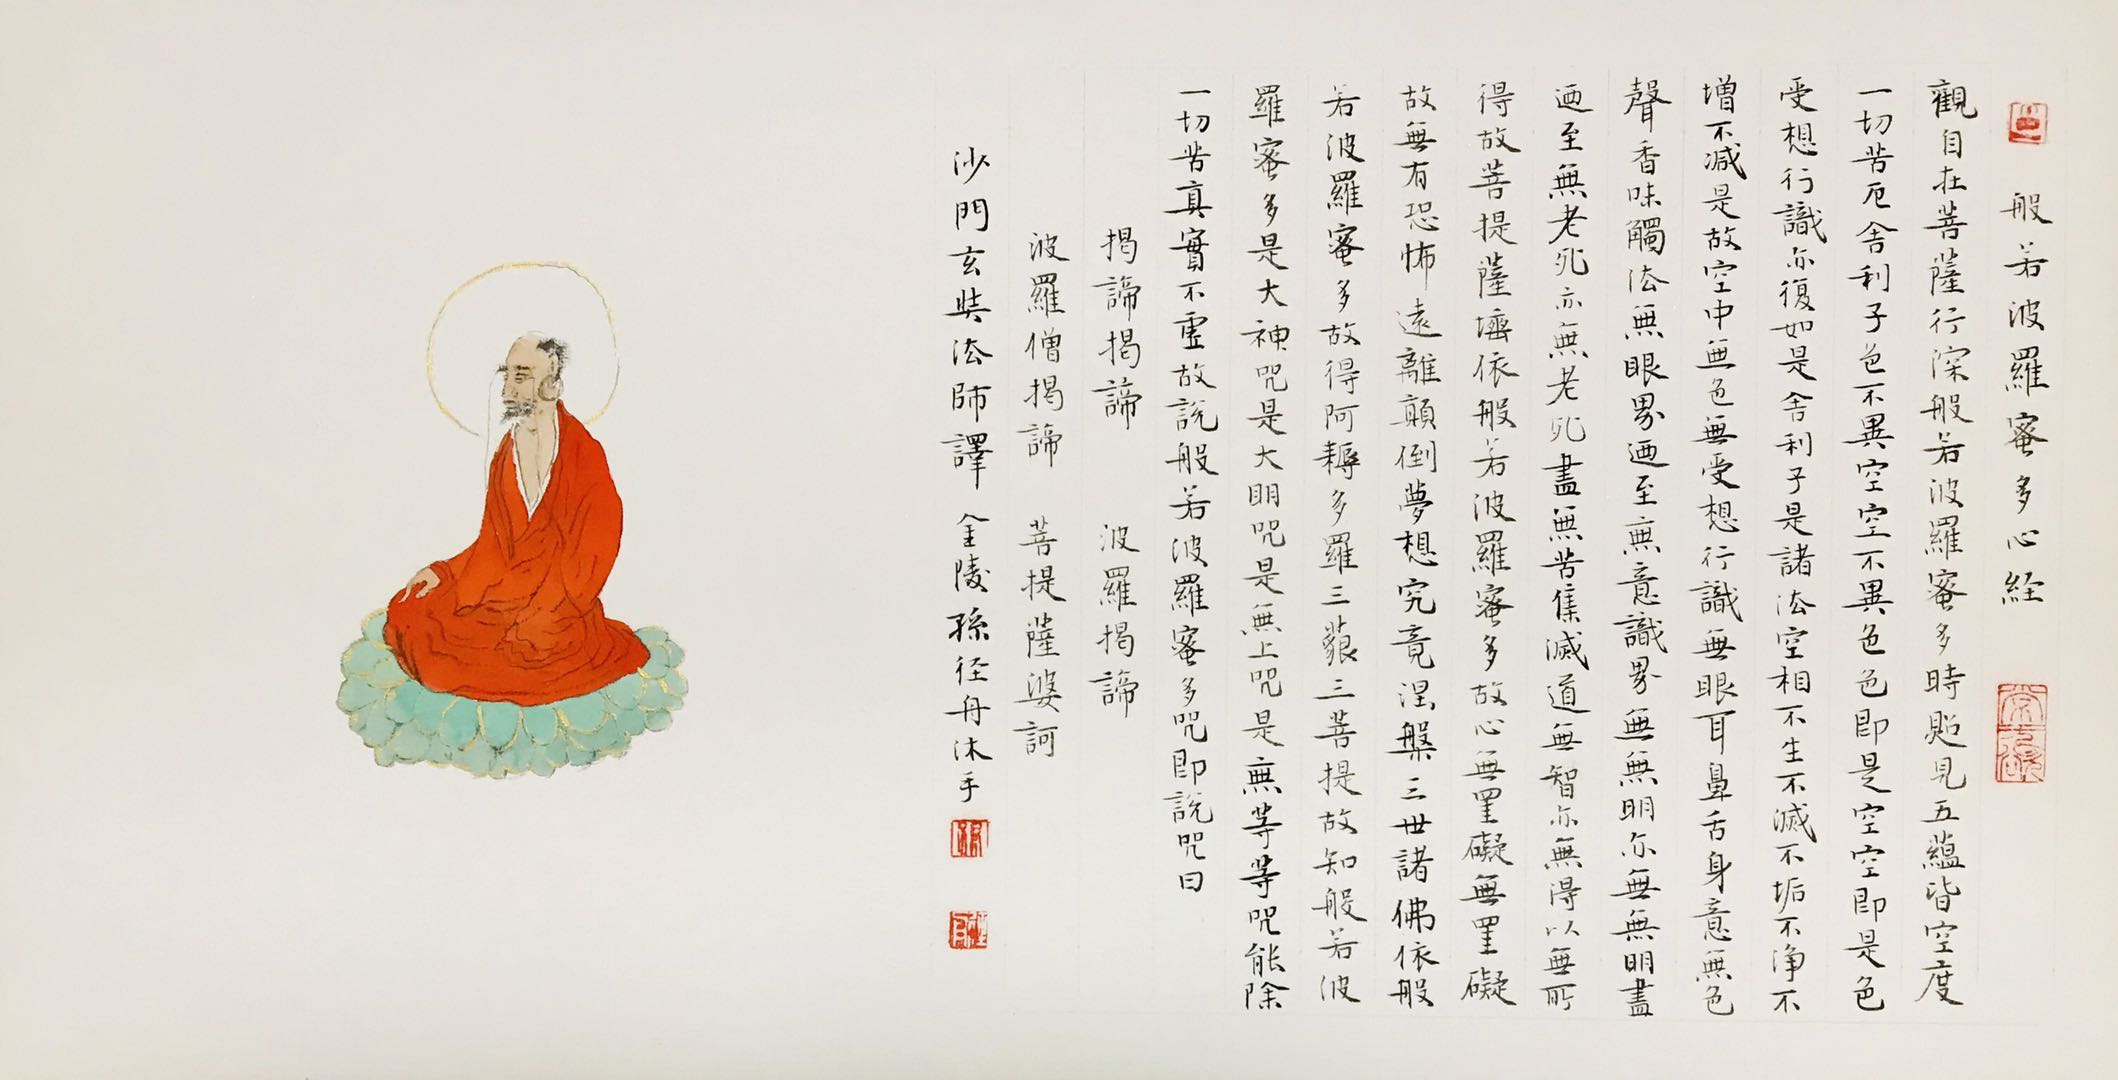 般若波羅蜜多心経
觀自在菩薩行深般若波羅蜜多時照見五蘊皆空度
一切苦厄舍利子色不異空空不異色色即是空空即是色
受想行識亦復如是舍利子是諸法空相不生不滅不垢不淨不
增不減是故空中無色無受想行識無眼耳鼻舌身意無色
聲香味觸法無眼界迺至無意識界無無明亦無無明盡
迺至無老死亦無老死盡無苦集滅道無智亦無得以無所
得故菩提薩埵依般若波羅蜜多故心無罣礙無罣礙
故無有恐怖遠離顛倒夢想究竟涅槃三世諸佛依般
若波羅蜜多故得阿耨多羅三藐三菩提故知般若波
羅蜜多是大神咒是大明咒是無上咒是無等等咒能除
一切苦真實不虛故說般若波羅蜜多咒即說咒曰
揭諦揭諦 波羅揭諦
波羅僧揭諦 菩提薩婆訶
沙門玄奘法師譯 金陵孫徑舟沐手